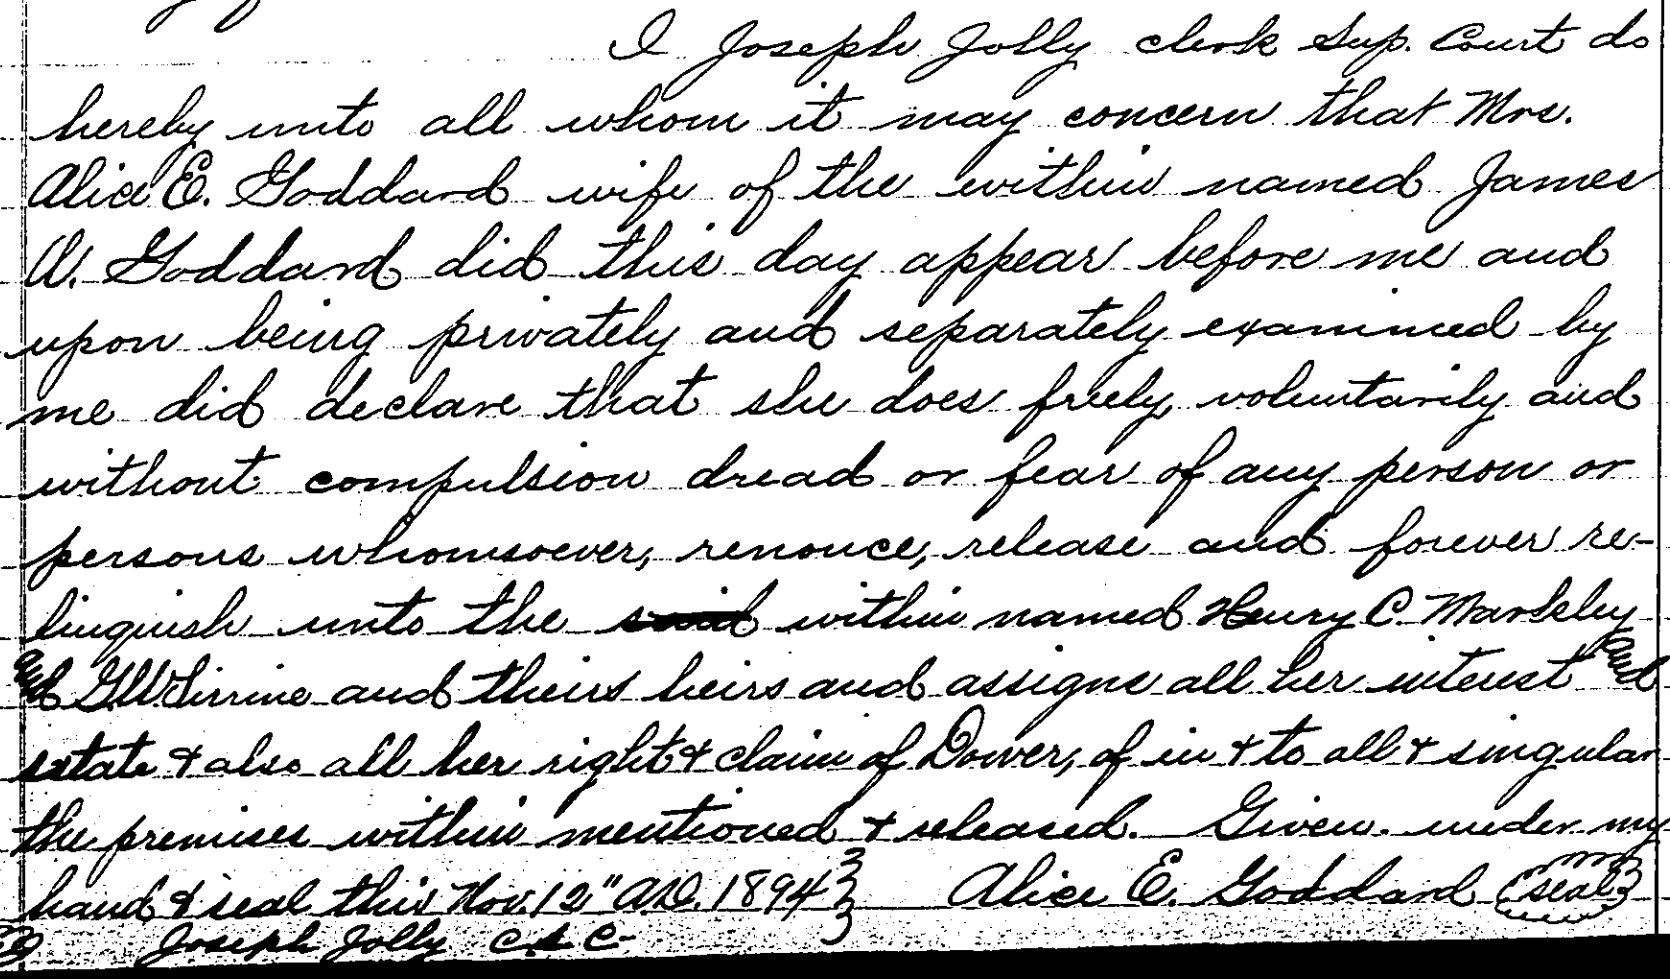 I Joseph Jolly clerk Sup. Court do
hereby unto all whom it may concern that Mrs.
Alice E. Goddard wife of the within named James
W. Goddard did this day appear before me and
upon being privately and separately examined by
me did declare that she does freely, voluntarily and
without compulsion dread or fear of any person or
persons whomsoever, renouce, release and forever re-
linquish unto the said within named Henry C. Markeley
and GW Sirrine and theirs heirs and assigns all her interest and
estate & also all her right & claim of Dower, of in & to all & singular
the premises within mentioned & released. Given under my
hand & seal this Nov. 12" A.D. 1894 Alice E. Goddard (seal)
Joseph Jolly C S C